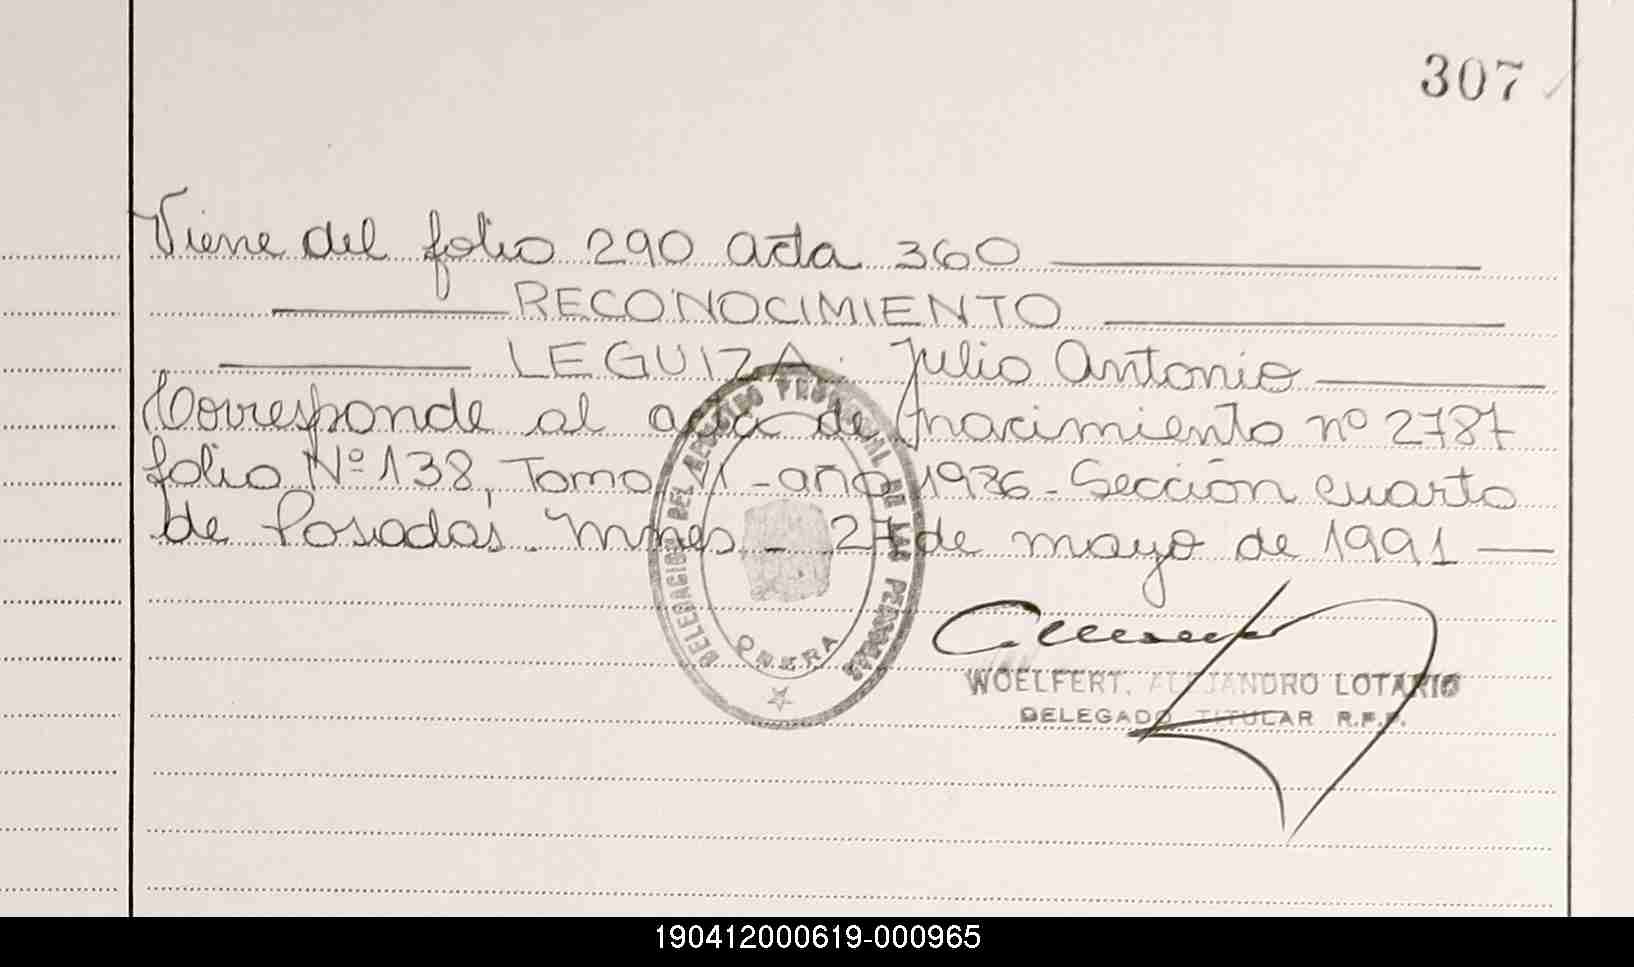 307
Viene del folio 290 acta 360
RECONOCIMIENTO
LEGUIZA. Julio Antonio
Corresponde al acta de nacimiento nº 2787
folio Nº 138, Tomo II - año 1986 - Sección cuarta
de Posadas. Mnes - 27 de mayo de 1991
DELEGACION DEL REGISTRO PROVINCIAL DE LAS PERSONAS
OBERA
WOELFERT, ALEJANDRO LOTARIO
DELEGADO TITULAR R.P.P.
190412000619-000965